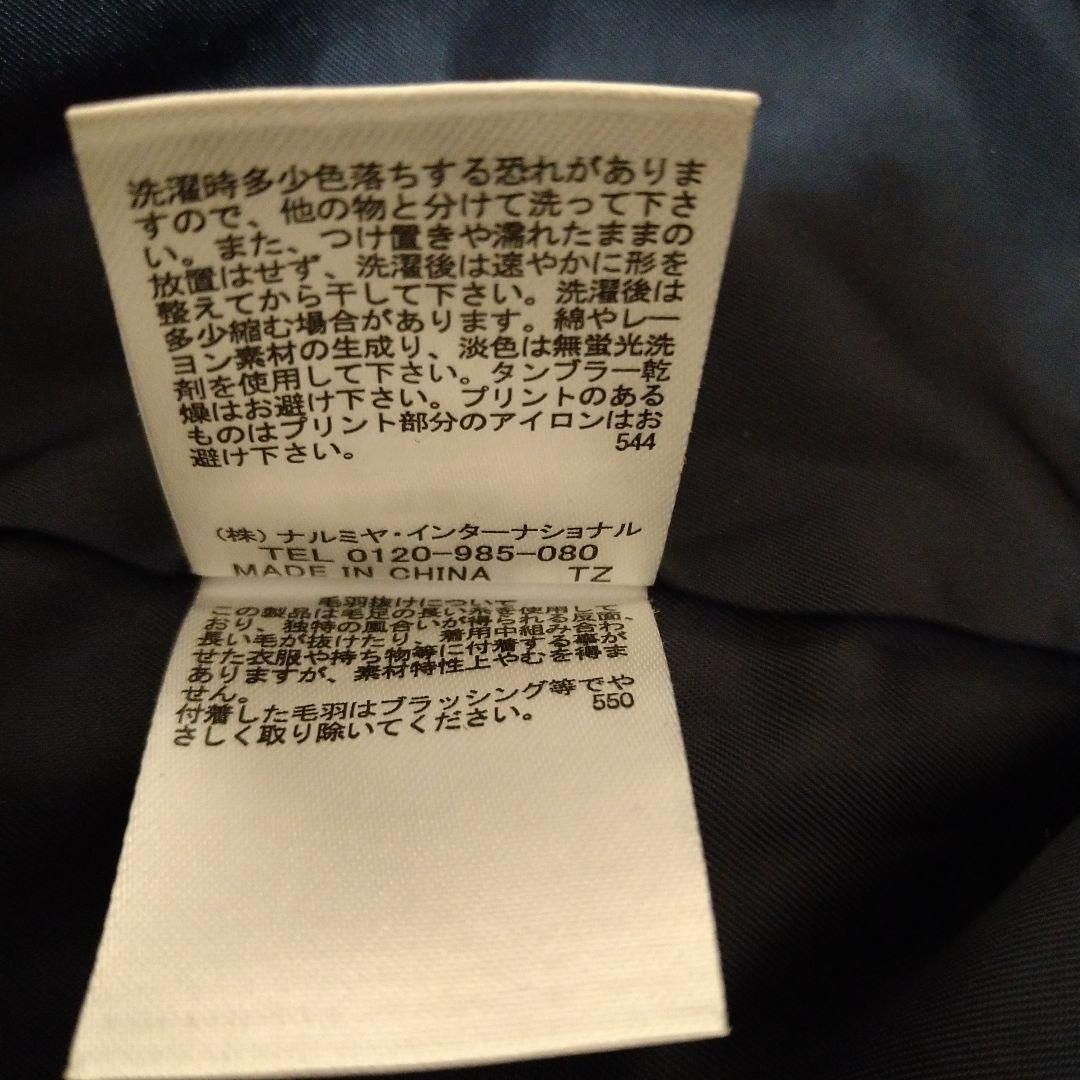 洗濯時多少色落ちする恐れがありま
すので、他の物と分けて洗って下さ
い。また、つけ置きや濡れたままの
放置はせず、洗濯後は速やかに形を
整えてから干して下さい。洗濯後は
多少縮む場合があります。綿やレー
ヨン素材の生成り、淡色は無蛍光洗
剤を使用して下さい。タンブラー乾
燥はお避け下さい。プリントのある
ものはプリント部分のアイロンはお
避け下さい。 544
(株)ナルミヤ・インターナショナル
TEL 0120-985-080
MADE IN CHINA TZ
毛羽抜けについて
この製品は毛足の長い糸を使用して
おり、独特の風合いが得られる反面、
長い毛が抜けたり、着用中組み合わ
せた衣服や持ち物等に付着する事が
ありますが、素材特性上やむを得ま
せん。
付着した毛羽はブラッシング等でや
さしく取り除いてください。 550